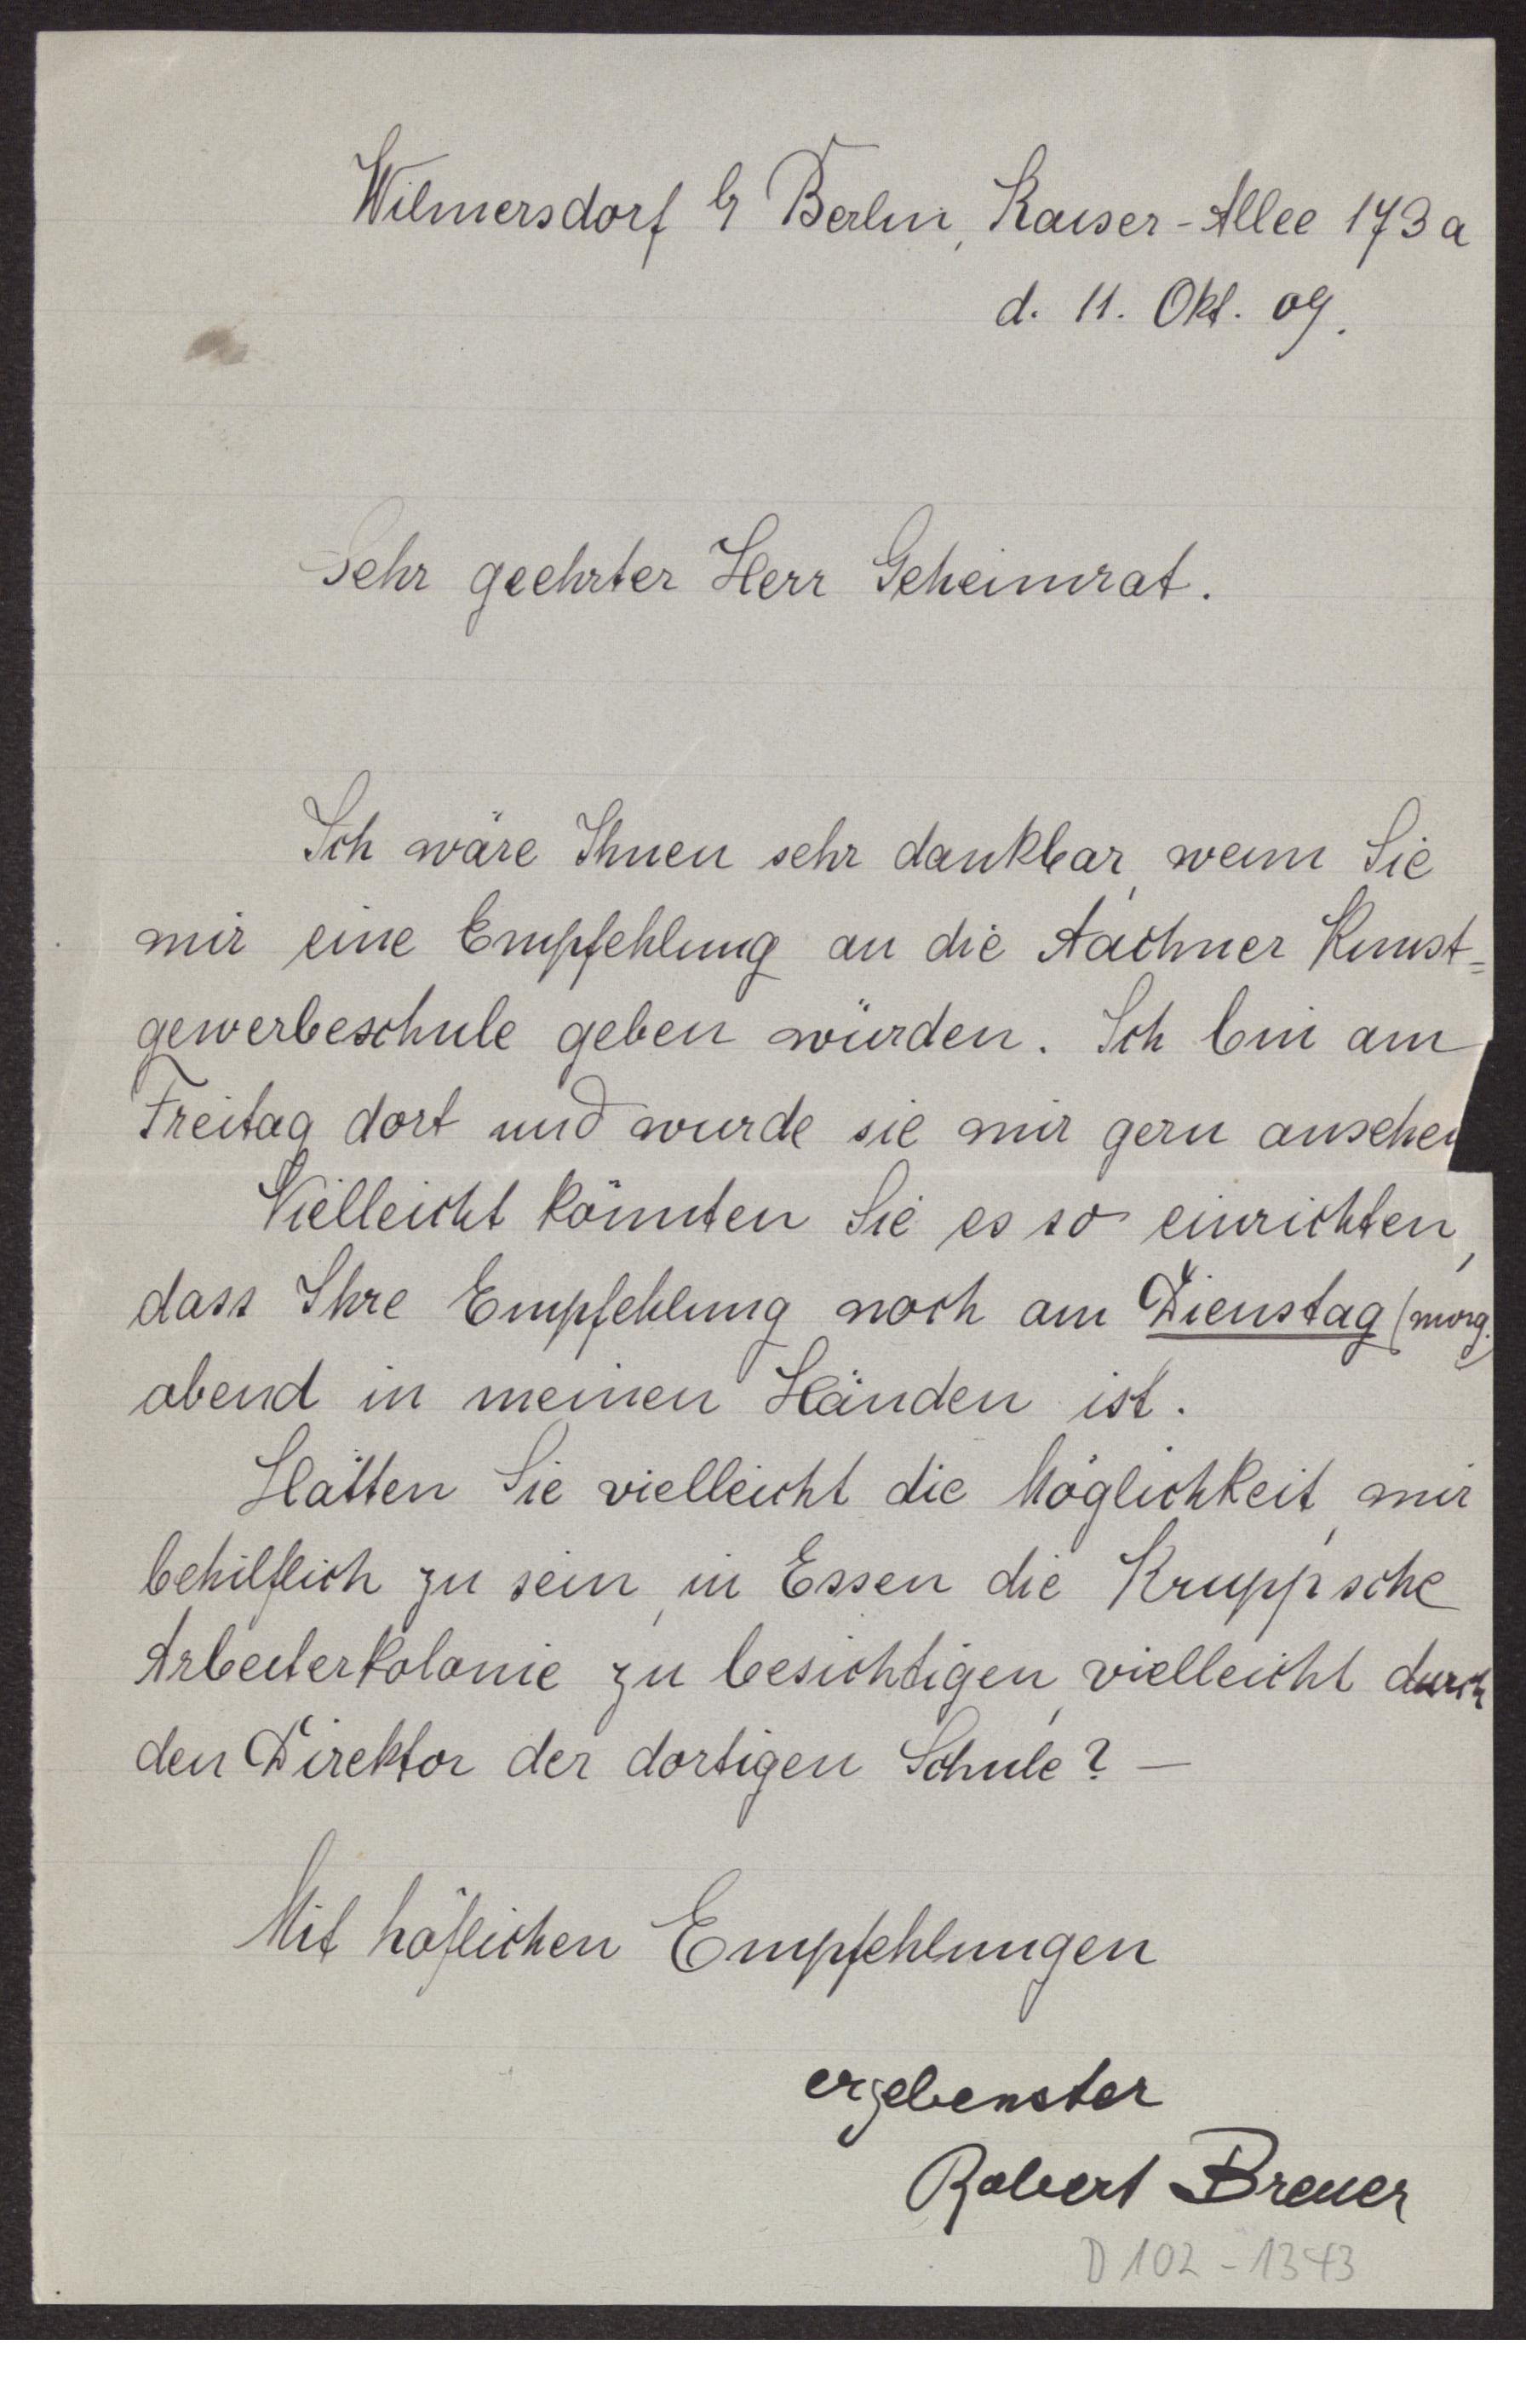 Wilmersdorf b/ Berlin, Kaiser-Allee 173a
d. 11. Okt. 09.
Sehr geehrter Herr Geheimrat.
Ich wäre Ihnen sehr dankbar, wenn Sie
mir eine Empfehlung an die Aachner Kunst=
gewerbeschule geben würden. Ich bin am
Freitag dort und wurde sie mir gern ansehen
Vielleicht könnten Sie es so einrichten,
dass Ihre Empfehlung noch am Dienstag (morg.)
abend in meinen Händen ist.
Hätten Sie vielleicht die Möglichkeit, mir
behilflich zu sein, in Essen die Krupp'sche
Arbeiterkolonie zu besichtigen, vielleicht durch
den Direktor der dortigen Schule? —
Mit höflichen Empfehlungen
ergebenster
Robert Breuer
D 102 - 1343